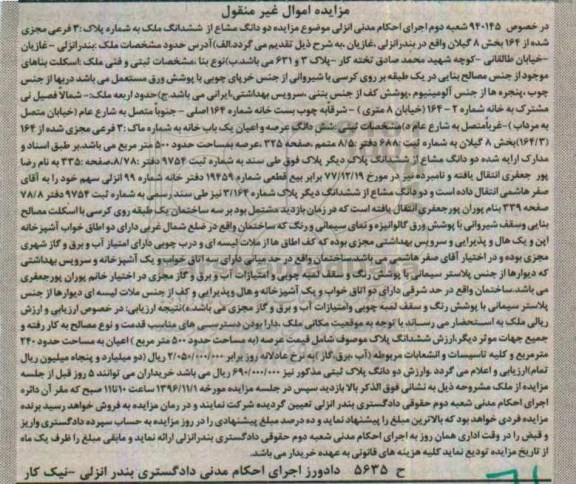 مزایده اموال غیر منقول
در خصوص ۹۴۰۱۴۵ شعبه دوم اجرای احکام مدنی انزلی موضوع مزایده دو دانگ مشاع از ششدانگ ملک به شماره پلاک :۳ فرعی مجزی
شده از ۱۶۴ بخش ۸ گیلان واقع در بندرانزلی ،غازیان ،به شرح ذیل تقدیم می گردد.الف) آدرس حدود مشخصات ملک :بندرانزلی - غازیان
-خیابان طالقانی -کوچه شهید محمد صادق تخته کار -پلاک ۳ و ۶۳۱ می باشد.ب)نوع بنا ،مشخصات ثبتی و فنی ملک :اسکلت بناهای
موجود از جنس مصالح بنایی در یک طبقه بر روی کرسی با شیروانی از جنس خرپای چوبی با پوشش ورق مستعمل می باشد درها از جنس
چوب ،پنجره ها از جنس آلومینیوم ،پوشش کف از جنس بتنی ،سرویس بهداشتی،ایرانی می باشد.ج)حدود اربعه ملک:- شمالاً فصیل نی
مشترک به خانه شماره ۲ - ۱۶۴ (خیابان ۸ متری ) - شرقاً به چوب بست خانه شماره ۱۶۴ اصلی - جنوباً متصل به شارع عام (خیابان متصل
به مرداب )-غرباً متصل به شارع عام د)مشخصات ثبتی :شش دانگ عرصه و اعیان یک باب خانه به شماره ماک :۳ فرعی مجزی شده از ۱۶۴
(۱۶۴/۳) بخش ۸ گیلان به شماره ثبت :۶۸۸ دفتر :۸/۵ متمم ،صفحه ۳۲۵ ،عرصه بمساحت حدود ۵۰۰ متر مربع می باشد.بر طبق اسناد و
مدارک ارایه شده دو دانگ مشاع از ششدانگ پلاک دیگر پلاک فوق طی سند به شماره ثبت ۹۷۵۴ دفتر :۸/۷۸،صفحه :۳۳۵ به نام رضا
پور جعفری انتقال یافته و نامبرده نیز در مورخ ۷۷/۱۲/۱۹ برابر بیع قطعی شماره ۱۹۴۵۹ دفتر خانه شماره ۹۹ انزلی سهم خود را به آقای
صفر هاشمی انتقال داده است و دو دانگ مشاع از ششدانگ دیگر پلاک شماره ۳/۱۶۴ نیز طی سند رسمی به شماره ثبت ۹۷۵۴ دفتر ۷۸/۸
صفحه ۳۳۹ بنام پوران پورجعفری انتقال یافته است که در زمان بازدید مشتمل بود بر سه ساختمان یک طبقه روی کرسی با اسکلت مصالح
بنایی وسقف شیروانی با پوشش ورق گالوانیزه و نمای سیمانی و رنگ که ساختمان واقع در ضلع شمال غربی دارای دو اطاق خواب آشپزخانه
اپن و یک هال و پذیرایی و سرویس بهداشتی مجزی بوده که کف اطاق ها از ملات لیسه ای و درب چوبی دارای امتیاز آب و برق و گاز شهری
مجزی بوده و در اختیار آقای صفر هاشمی می باشد.ساختمان واقع در حد میانی دارای سه اتاق خواب و یک آشپزخانه و سرویس بهداشتی
که دیوارها از جنس پلاستر سیمانی با پوشش رنگ و سقف لمبه چوبی و امتیازات آب و برق و گاز مجزی در اختیار خانم پوران پورجعفری
می باشد.ساختمان واقع در حد شرقی دارای دو اتاق خواب و یک آشپزخانه و هال وپذیرایی و کف از جنس ملات لیسه ای دیوارها از جنس
پلاستر سیمانی با پوشش رنگ و سقف لمبه چوبی و امتیازات آب و برق و گاز مجزی می باشد.ه)نتیجه ارزیابی: در خصوص ارزیابی و ارزش
ریالی ملک به استحضار می رساند با توجه به موقعیت مکانی ملک ،دارا بودن دسترسی های مناسب قدمت و نوع مصالح به کار رفته و
جمیع جهات موثر دیگر،ارزش ششدانگ پلاک موصوف شامل قیمت عرصه (به مساحت حدود ۵۰۰ متر مربع ) اعیان به مساحت حدود ۲۴۰
مترمربع و کلیه تاسیسات و انشعابات مربوطه (آب ،برق،گاز )به نرخ عادلانه روز برابر ۲/۰۵۰/۰۰۰/۰۰۰ ریال (دو میلیارد و پنجاه میلیون ریال
تمام)ارزیابی و اعلام می گردد .وارزش دو دانگ پلاک ثبتی مذکور نیز ۶۹۰/۰۰۰/۰۰۰ ریال می باشد خریداران می توانند ۵ روز قبل از جلسه
مزایده از ملک مشروحه ذیل به نشانی فوق الذکر بالا بازدید سپس در جلسه مزایده مورخه ۱۳۹۶/۱۱/۱ ساعت ۱۰ تا ۱۱ صبح که مقر آن دائره
اجرای احکام مدنی شعبه دوم حقوقی دادگستری بندر انزلی تعیین گردیده شرکت نمایند و در زمان مزایده به فروش خواهد رسید برنده
مزایده فردی خواهد بود که بالاترین مبلغ را پیشنهاد نماید و ده درصد مبلغ پیشنهادی را در روز مزایده به حساب سپرده دادگستری واریز
و قبض را در وقت اداری همان روز به اجرای احکام مدنی شعبه دوم حقوقی دادگستری بندرانزلی ارائه نماید و مابقی مبلغ را ظرف یک ماه
از تاریخ مزایده تودیع نماید کلیه هزینه های قانونی به عهده خریدار می باشد.
ح ۵۶۳۵ دادورز اجرای احکام مدنی دادگستری بندر انزلی -نیک کار